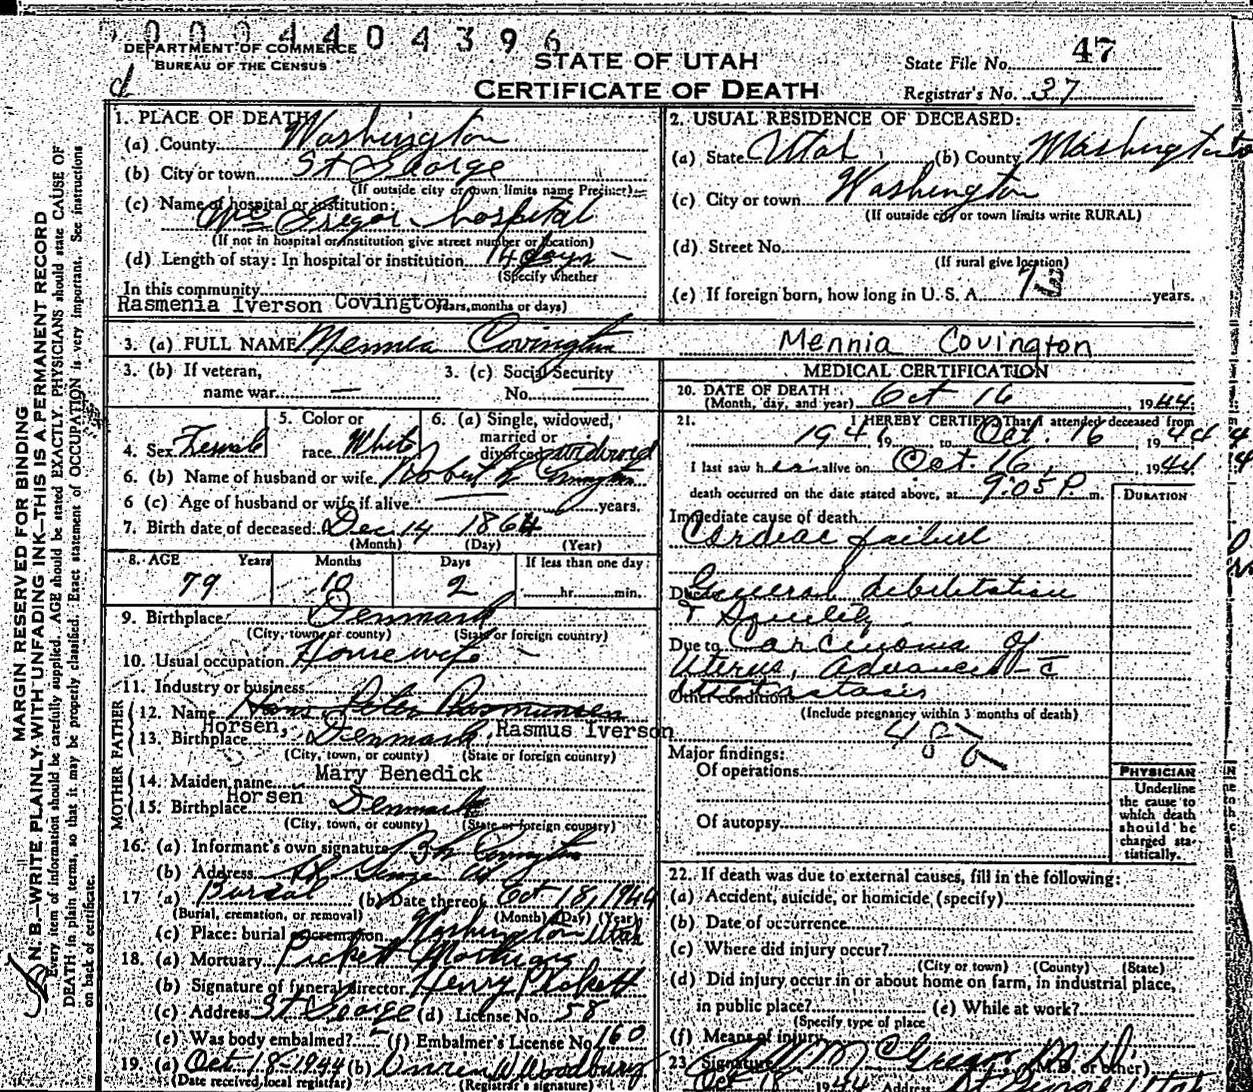 0 0 0 4 4 0 4 3 9 6
DEPARTMENT OF COMMERCE
BUREAU OF THE CENSUS
STATE OF UTAH
CERTIFICATE OF DEATH
State File No. 47
Registrar's No. 37
MARGIN RESERVED FOR BINDING
N. B.—WRITE PLAINLY WITH UNFADING INK—THIS IS A PERMANENT RECORD
Every item of information should be carefully supplied. AGE should be stated EXACTLY. PHYSICIANS should state CAUSE OF
DEATH in plain terms, so that it may be properly classified. Exact statement of OCCUPATION is very important. See instructions
on back of certificate.
1. PLACE OF DEATH
(a) County Washington
(b) City or town St George
(If outside city or town limits name Precinct)
(c) Name of hospital or institution:
McGregor hospital
(If not in hospital or institution give street number or location)
(d) Length of stay: In hospital or institution 14 days
(Specify whether
In this community
Rasmenia Iverson Covington years, months or days)
2. USUAL RESIDENCE OF DECEASED:
(a) State Utah (b) County Washington
(c) City or town Washington
(If outside city or town limits write RURAL)
(d) Street No.
(If rural give location)
(e) If foreign born, how long in U. S. A. years.
3. (a) FULL NAME Mennia Covington
Mennia Covington
3. (b) If veteran,
name war —
3. (c) Social Security
No. —
4. Sex Female
5. Color or
race White
6. (a) Single, widowed,
married or
divorced widowed
6. (b) Name of husband or wife Robert Covington
6 (c) Age of husband or wife if alive — years.
7. Birth date of deceased: Dec 14 1864
(Month) (Day) (Year)
8. AGE Years Months Days If less than one day:
79 10 2 hr. min.
9. Birthplace: Denmark
(City, town, or county) (State or foreign country)
10. Usual occupation Housewife
11. Industry or business
FATHER
12. Name Hans Peter Rasmussen
Horsen, Rasmus Iverson
13. Birthplace Denmark
(City, town, or county) (State or foreign country)
MOTHER
14. Maiden name Mary Benedick
15. Birthplace Horsen Denmark
(City, town, or county) (State or foreign country)
16. (a) Informant's own signature Covington
(b) Address St. George Ut
17 (a) Burial (b) Date thereof Oct 18, 1944
(Burial, cremation, or removal) (Month) (Day) (Year)
(c) Place: burial or cremation Washington Utah
18. (a) Mortuary Pickett Mortuary
(b) Signature of funeral director Henry Pickett
(c) Address St George (d) License No. 58
(e) Was body embalmed? (f) Embalmer's License No. 160
19. (a) Oct 18-1944 (b) Woodbury
(Date received local registrar) (Registrar's signature)
MEDICAL CERTIFICATION
20. DATE OF DEATH
(Month, day, and year) Oct 16, 1944
21. I HEREBY CERTIFY, That I attended deceased from
to Oct. 16 1944
I last saw her alive on Oct. 16, 1944
death occurred on the date stated above, at 9:05 P. m.
DURATION
Immediate cause of death
Cardiac failure
Due to General debilitation
Due to Carcinoma of
Uterus, Advanced c̄
Metastasis
Other conditions
(Include pregnancy within 3 months of death)
Major findings:
Of operations
Of autopsy
PHYSICIAN
Underline
the cause to
which death
should be
charged sta-
tistically.
22. If death was due to external causes, fill in the following:
(a) Accident, suicide, or homicide (specify)
(b) Date of occurrence
(c) Where did injury occur?
(City or town) (County) (State)
(d) Did injury occur in or about home on farm, in industrial place,
in public place? (e) While at work?
(Specify type of place
(f) Means of injury
23. Signature McGregor M.D. (M.D. or other)
Oct 1944 Address St George Utah